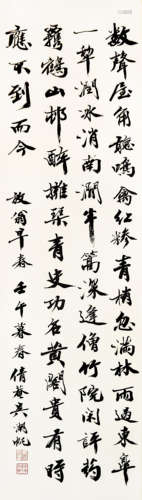 數聲屋角聽鳴禽紅糝青梢忽滿林雨過東皋
一犁潤冰消南澗半篙深逢僧竹院閑評葯
攜鶴山邨醉擁琴青史功名黃閣貴有時
應不到而今
放翁早春 壬午暮春 倩菴吳湖帆